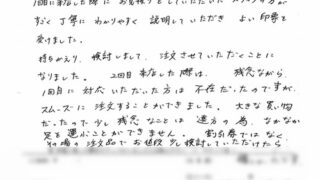 1回目に来店した際にお見積りをしていただいた
だく丁寧にわかりやすく説明していただきよい印象を
受けました。
持ちかえり、検討しまして、注文させていただくことに
なりました。2回目来店した際は、残念ながら
1回目に対応いただいた方は不在だったのですが、
スムーズに注文することができました。大きな買い物
だったので少し残念なことは遠方の為、なかなか
足を運ぶことができません。割引券ではなく
その場の注文品でお値段少し検討していただけたら